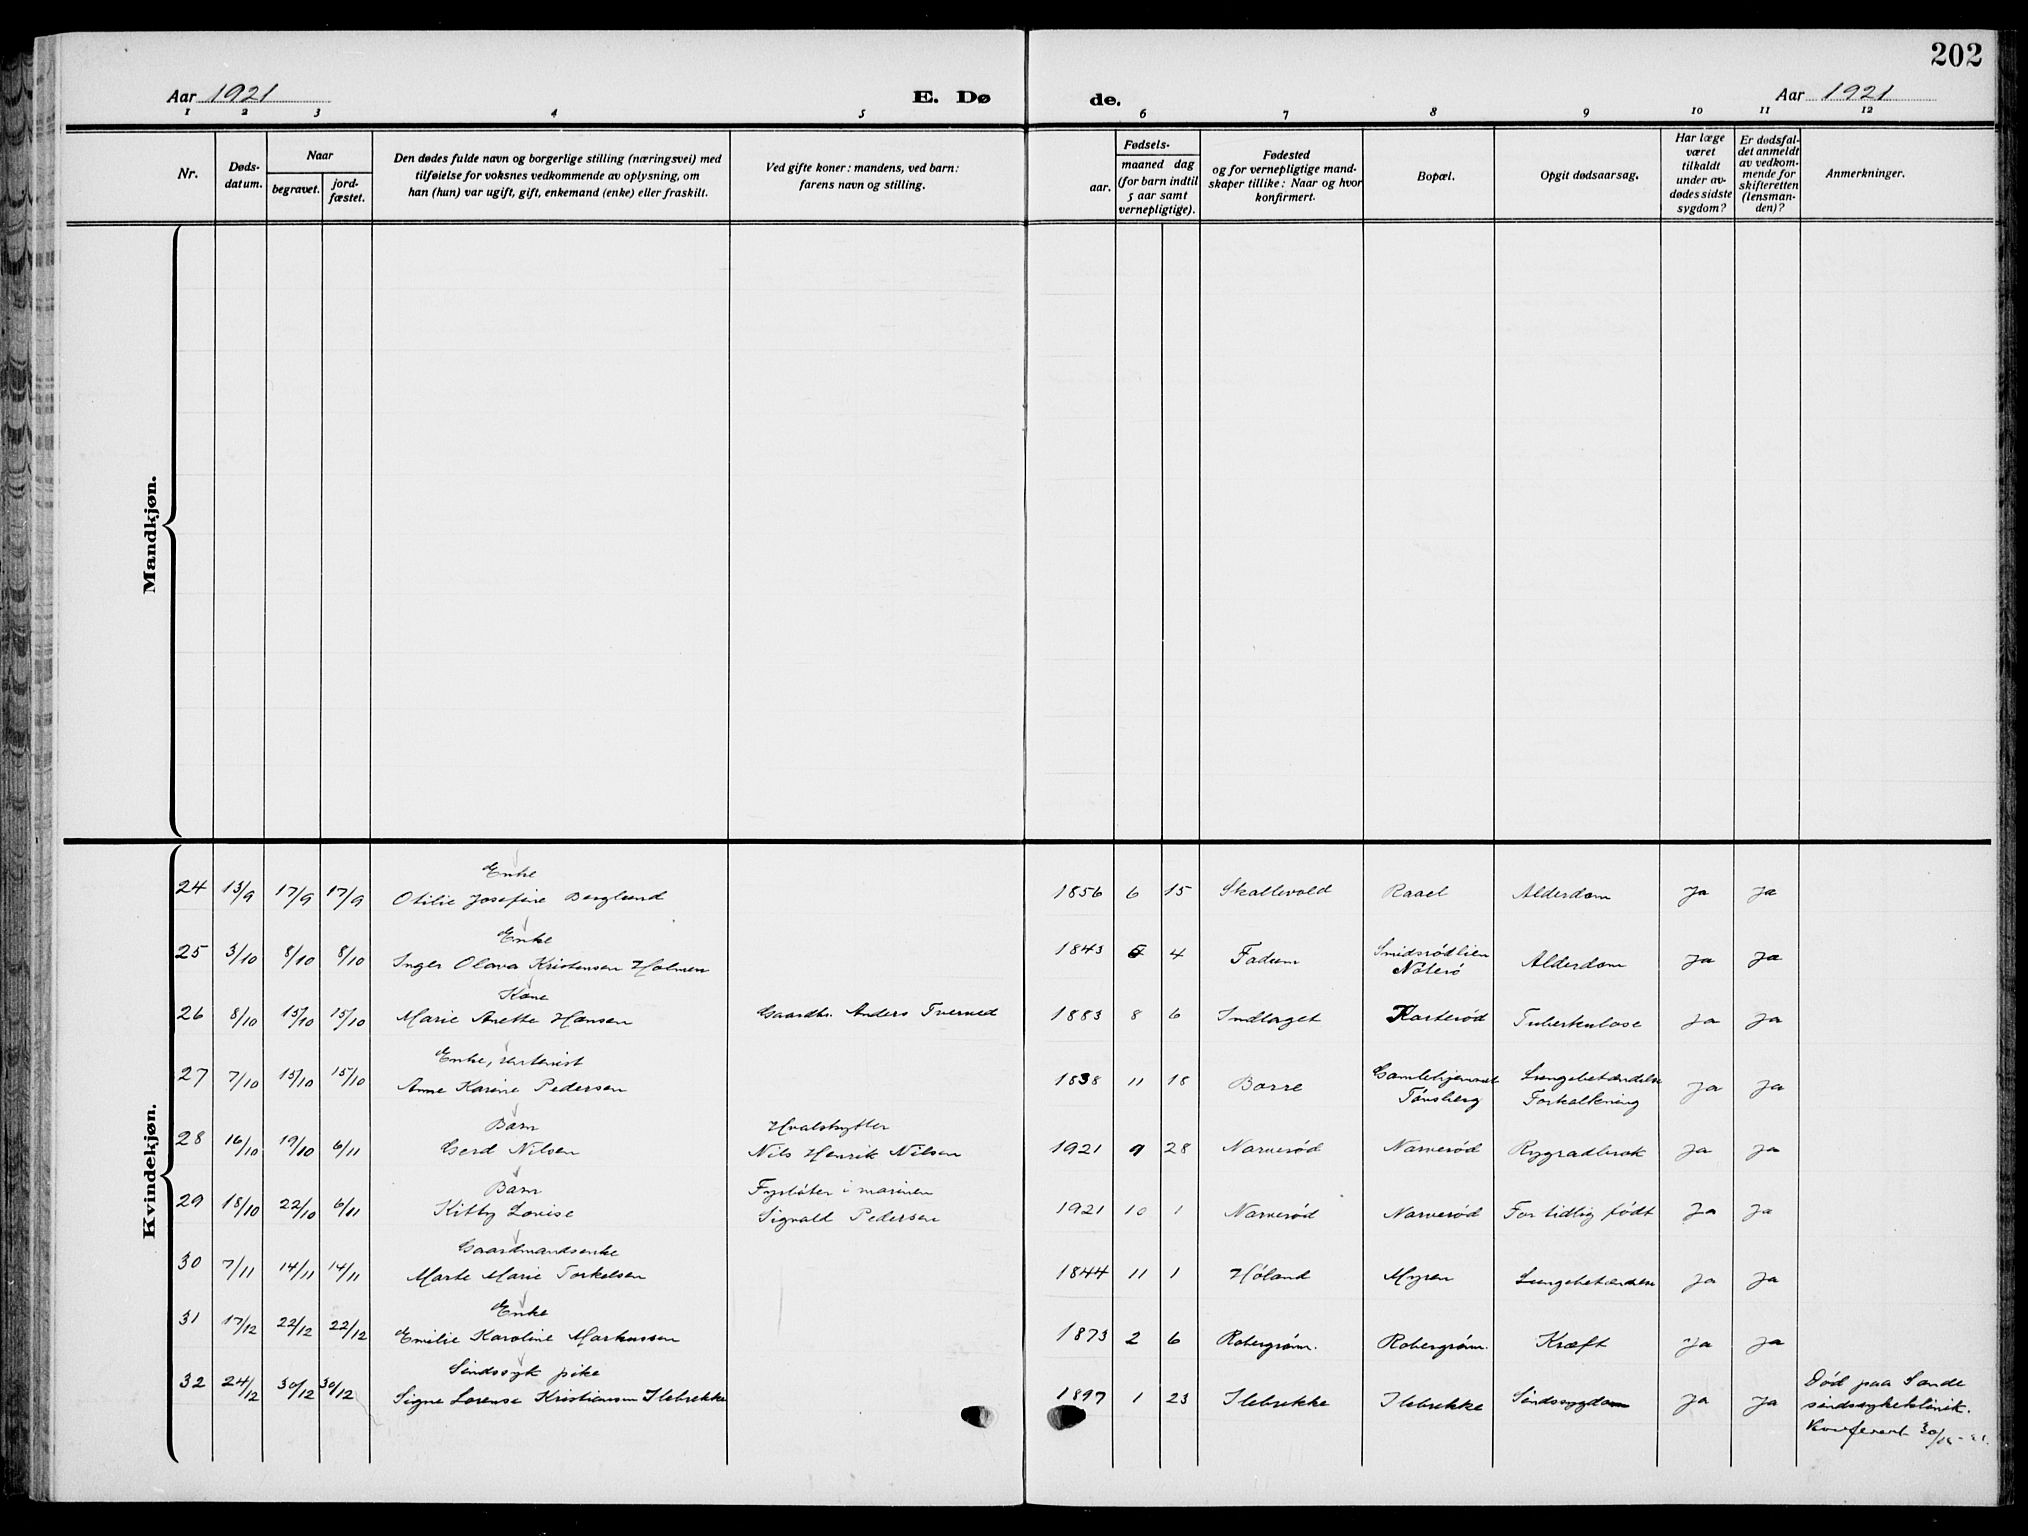 202
Aar 1921 E. Dø de. Aar 1921
1 2 3 4 5 6 7 8 9 10 11 12
Nr.
Døds-
datum.
Naar
begravet.
jord-
fæstet.
Den dødes fulde navn og borgerlige stilling (næringsvei) med
tilføielse for voksnes vedkommende av oplysning, om
han (hun) var ugift, gift, enkemand (enke) eller fraskilt.
Ved gifte koner: mandens, ved barn:
farens navn og stilling.
Fødsels-
aar.
maaned dag
(for barn indtil
5 aar samt
vernepligtige).
Fødested
og for vernepligtige mand-
skaper tillike: Naar og hvor
konfirmert.
Bopæl.
Opgit dødsaarsag.
Har læge
været
tilkaldt
under av-
dødes sidste
sygdom?
Er dødsfal-
det anmeldt
av vedkom-
mende for
skifteretten
(lensman-
den)?
Anmerkninger.
Mandkjøn.
Kvindekjøn.
Enke
24 13/9 17/9 17/9 Otilie Josefine Berglund 1856 6 15 Skallevold Raael Alderdom Ja Ja
Enke
25 3/10 8/10 8/10 Inger Olava Kristensen Holmen 1843 4 Fadum Smidsrødlien
Nøterø Alderdom Ja Ja
Kone
26 8/10 15/10 15/10 Marie Anette Hansen Gaardbr. Anders Tverved 1883 8 6 Indlaget Karterød Tuberkulose Ja Ja
Enke,
27 7/10 15/10 15/10 Anne Karine Pedersen 1838 11 18 Borre Gamlehjemmet
Tønsberg Lungebetændelse
Forkalkning Ja Ja
Barn Hvalskytter
28 16/10 19/10 6/11 Gerd Nilsen Nils Henrik Nilsen 1921 9 28 Narverød Narverød Rygradbrok Ja Ja
Barn Fyrbøter i marinen
29 18/10 22/10 6/11 Kitty Lovise Sigvald Pedersen 1921 10 1 Narverød Narverød For tidlig født Ja Ja
Gaardmandsenke
30 7/11 14/11 14/11 Marte Marie Torkelsen 1844 11 1 Høland Myren Lungebetændelse Ja Ja
Enke
31 17/12 22/12 22/12 Emilie Karoline Markussen 1873 2 6 Robergrøm. Robergrøm. Kræft Ja Ja
Sindssyk pike
32 24/12 30/12 30/12 Signe Lorense Kristiansen Ilebrekke 1897 1 23 Ilebrekke Ilebrekke Sindssygdom Ja Ja Død paa Sande
sindssykeklinik.
Konferert 30/12-21.